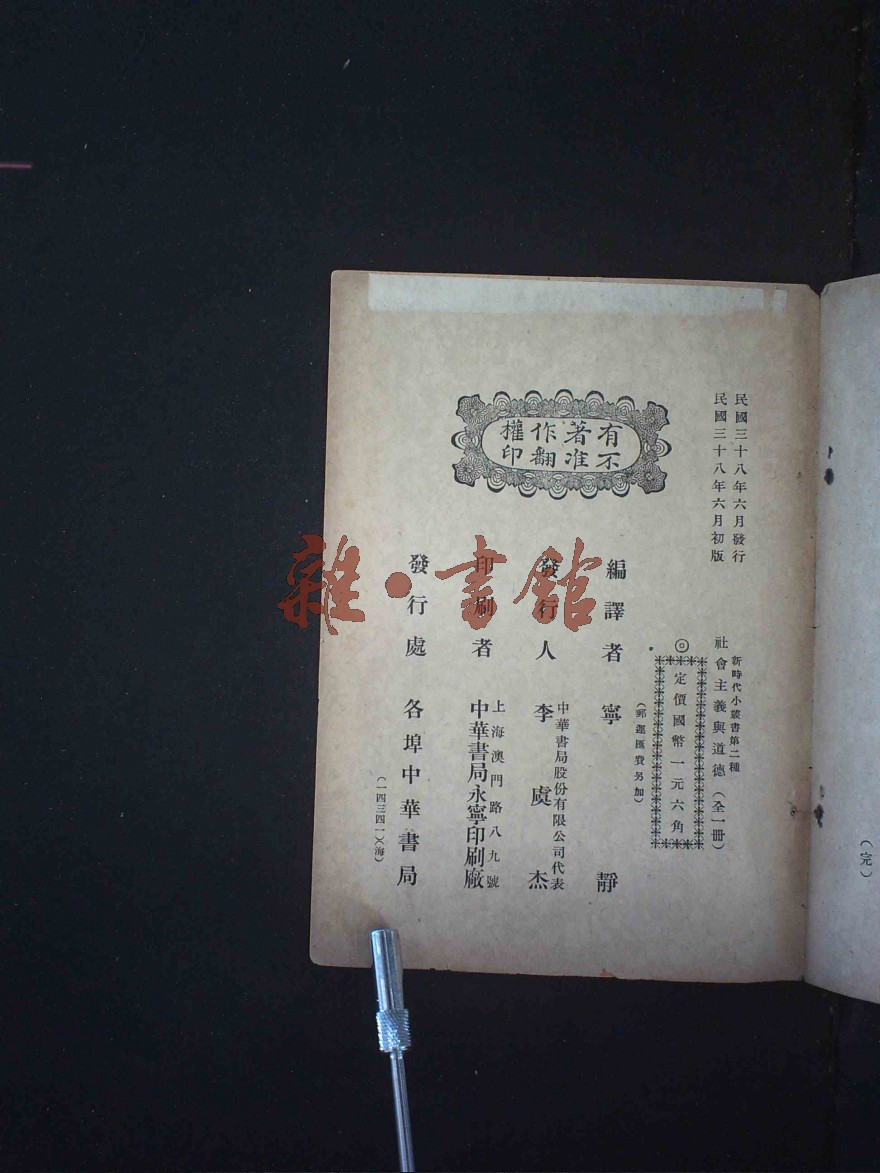 民國三十八年六月發行
民國三十八年六月初版
有著作權
不准翻印
新時代小叢書第二種
社會主義與道德（全一冊）
◎定價國幣一元六角
（郵運匯費另加）
編譯者 寧靜
發行人 中華書局股份有限公司代表
李虞杰
印刷者 上海澳門路八九號
中華書局永寧印刷廠
發行處 各埠中華書局
（一四三四一）（海）
（完）
雜·書館